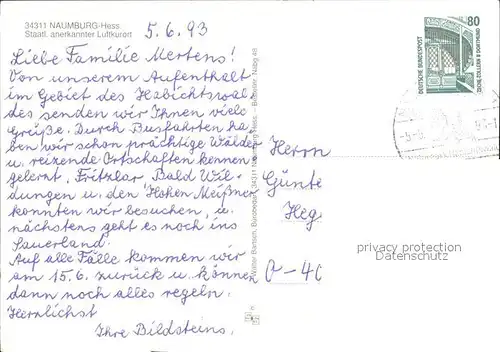 34311 NAUMBURG-Hess
Staatl. anerkannter Luftkurort
5.6.93
Liebe Familie Mertens!
Von unserem Aufenthalt
im Gebiet des Habichtswal,
des senden wir Ihnen viele
Grüße. Durch Busfahrten ha,
ben wir schon prächtige Wälder
u. reizende Ortschaften kennen
gelernt. Fritzlar Bald Wil-
dungen u. den Hohen Meißner
konnten wir besuchen, u.
nächstens geht es noch ins
Sauerland.
Auf alle Fälle kommen wir
am 15.6. zurück u. können
dann noch alles regeln.
Herzlichst
Ihre Bildsteins.
80
DEUTSCHE BUNDESPOST
ZECHE ZOLLERN II DORTMUND
Herrn
Günte
Heg
D-40
privacy protection
Datenschutz